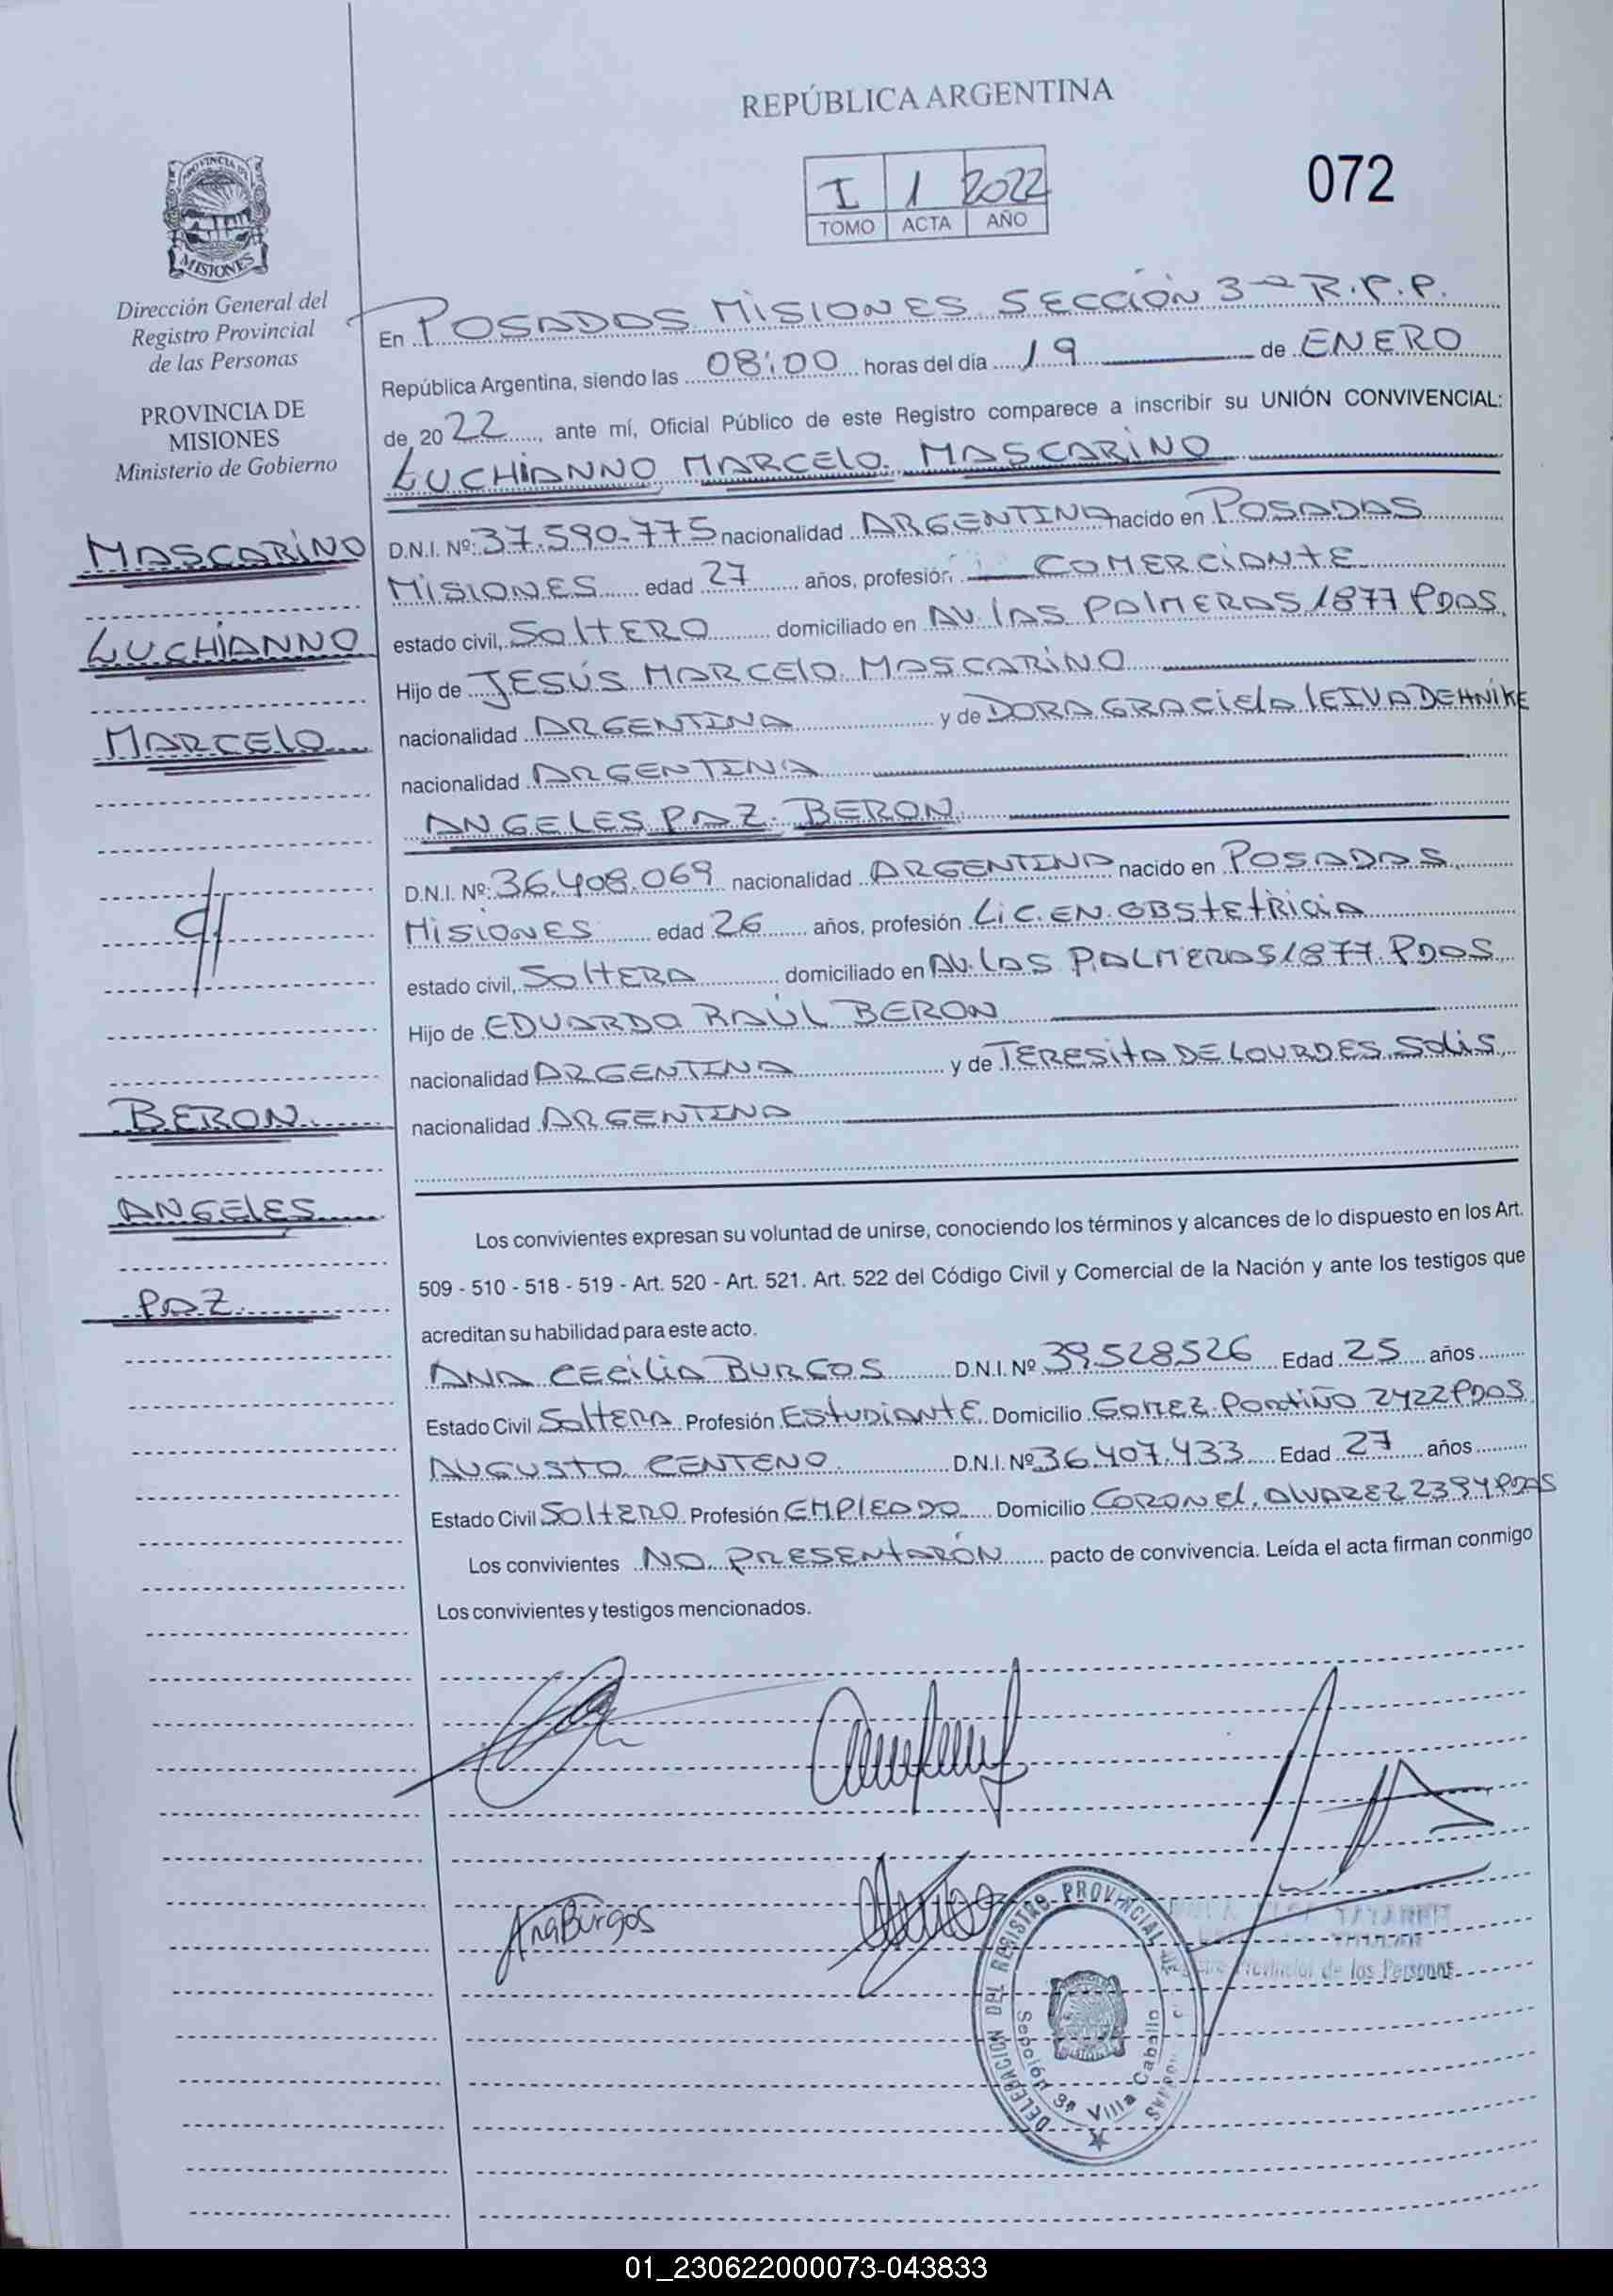 REPÚBLICA ARGENTINA
I 1 2022
TOMO ACTA AÑO
072
PROVINCIA DE
MISIONES
Dirección General del
Registro Provincial
de las Personas
PROVINCIA DE
MISIONES
Ministerio de Gobierno
MASCARINO
LUCHIANNO
MARCELO
BERON
ANGELES
PAZ
En POSADAS MISIONES SECCIÓN 3ª R.P.P.
República Argentina, siendo las 08:00 horas del día 19 de ENERO
de 2022, ante mí, Oficial Público de este Registro comparece a inscribir su UNIÓN CONVIVENCIAL:
LUCHIANNO MARCELO MASCARINO
D.N.I. Nº: 37.590.775 nacionalidad ARGENTINA nacido en POSADAS
MISIONES edad 27 años, profesión COMERCIANTE
estado civil, SOLTERO domiciliado en AV. LAS PALMERAS 1877 PDAS
Hijo de JESÚS MARCELO MASCARINO
nacionalidad ARGENTINA y de DORA GRACIELA LEIVA DEHNIKE
nacionalidad ARGENTINA
ANGELES PAZ BERON
D.N.I. Nº: 36.408.069 nacionalidad ARGENTINA nacido en POSADAS
MISIONES edad 26 años, profesión LIC. EN OBSTETRICIA
estado civil, SOLTERA domiciliado en AV. LAS PALMERAS 1877 PDAS
Hijo de EDUARDO RAÚL BERON
nacionalidad ARGENTINA y de TERESITA DE LOURDES SOLIS
nacionalidad ARGENTINA
Los convivientes expresan su voluntad de unirse, conociendo los términos y alcances de lo dispuesto en los Art.
509 - 510 - 518 - 519 - Art. 520 - Art. 521. Art. 522 del Código Civil y Comercial de la Nación y ante los testigos que
acreditan su habilidad para este acto.
ANA CECILIA BURGOS D.N.I. Nº 39528526 Edad 25 años
Estado Civil SOLTERA Profesión ESTUDIANTE Domicilio GOMEZ PORTIÑO 2422 PDAS
AUGUSTO CENTENO D.N.I. Nº 36.407.433 Edad 27 años
Estado Civil SOLTERO Profesión EMPLEADO Domicilio CORONEL ALVAREZ 2394 PDAS
Los convivientes NO PRESENTARÓN pacto de convivencia. Leída el acta firman conmigo
Los convivientes y testigos mencionados.
Ana Burgos
DELEGACION DEL REGISTRO PROVINCIAL DE
Sección 3ª Villa Cabello
TITULAR
Provincial de las Personas
01_230622000073-043833